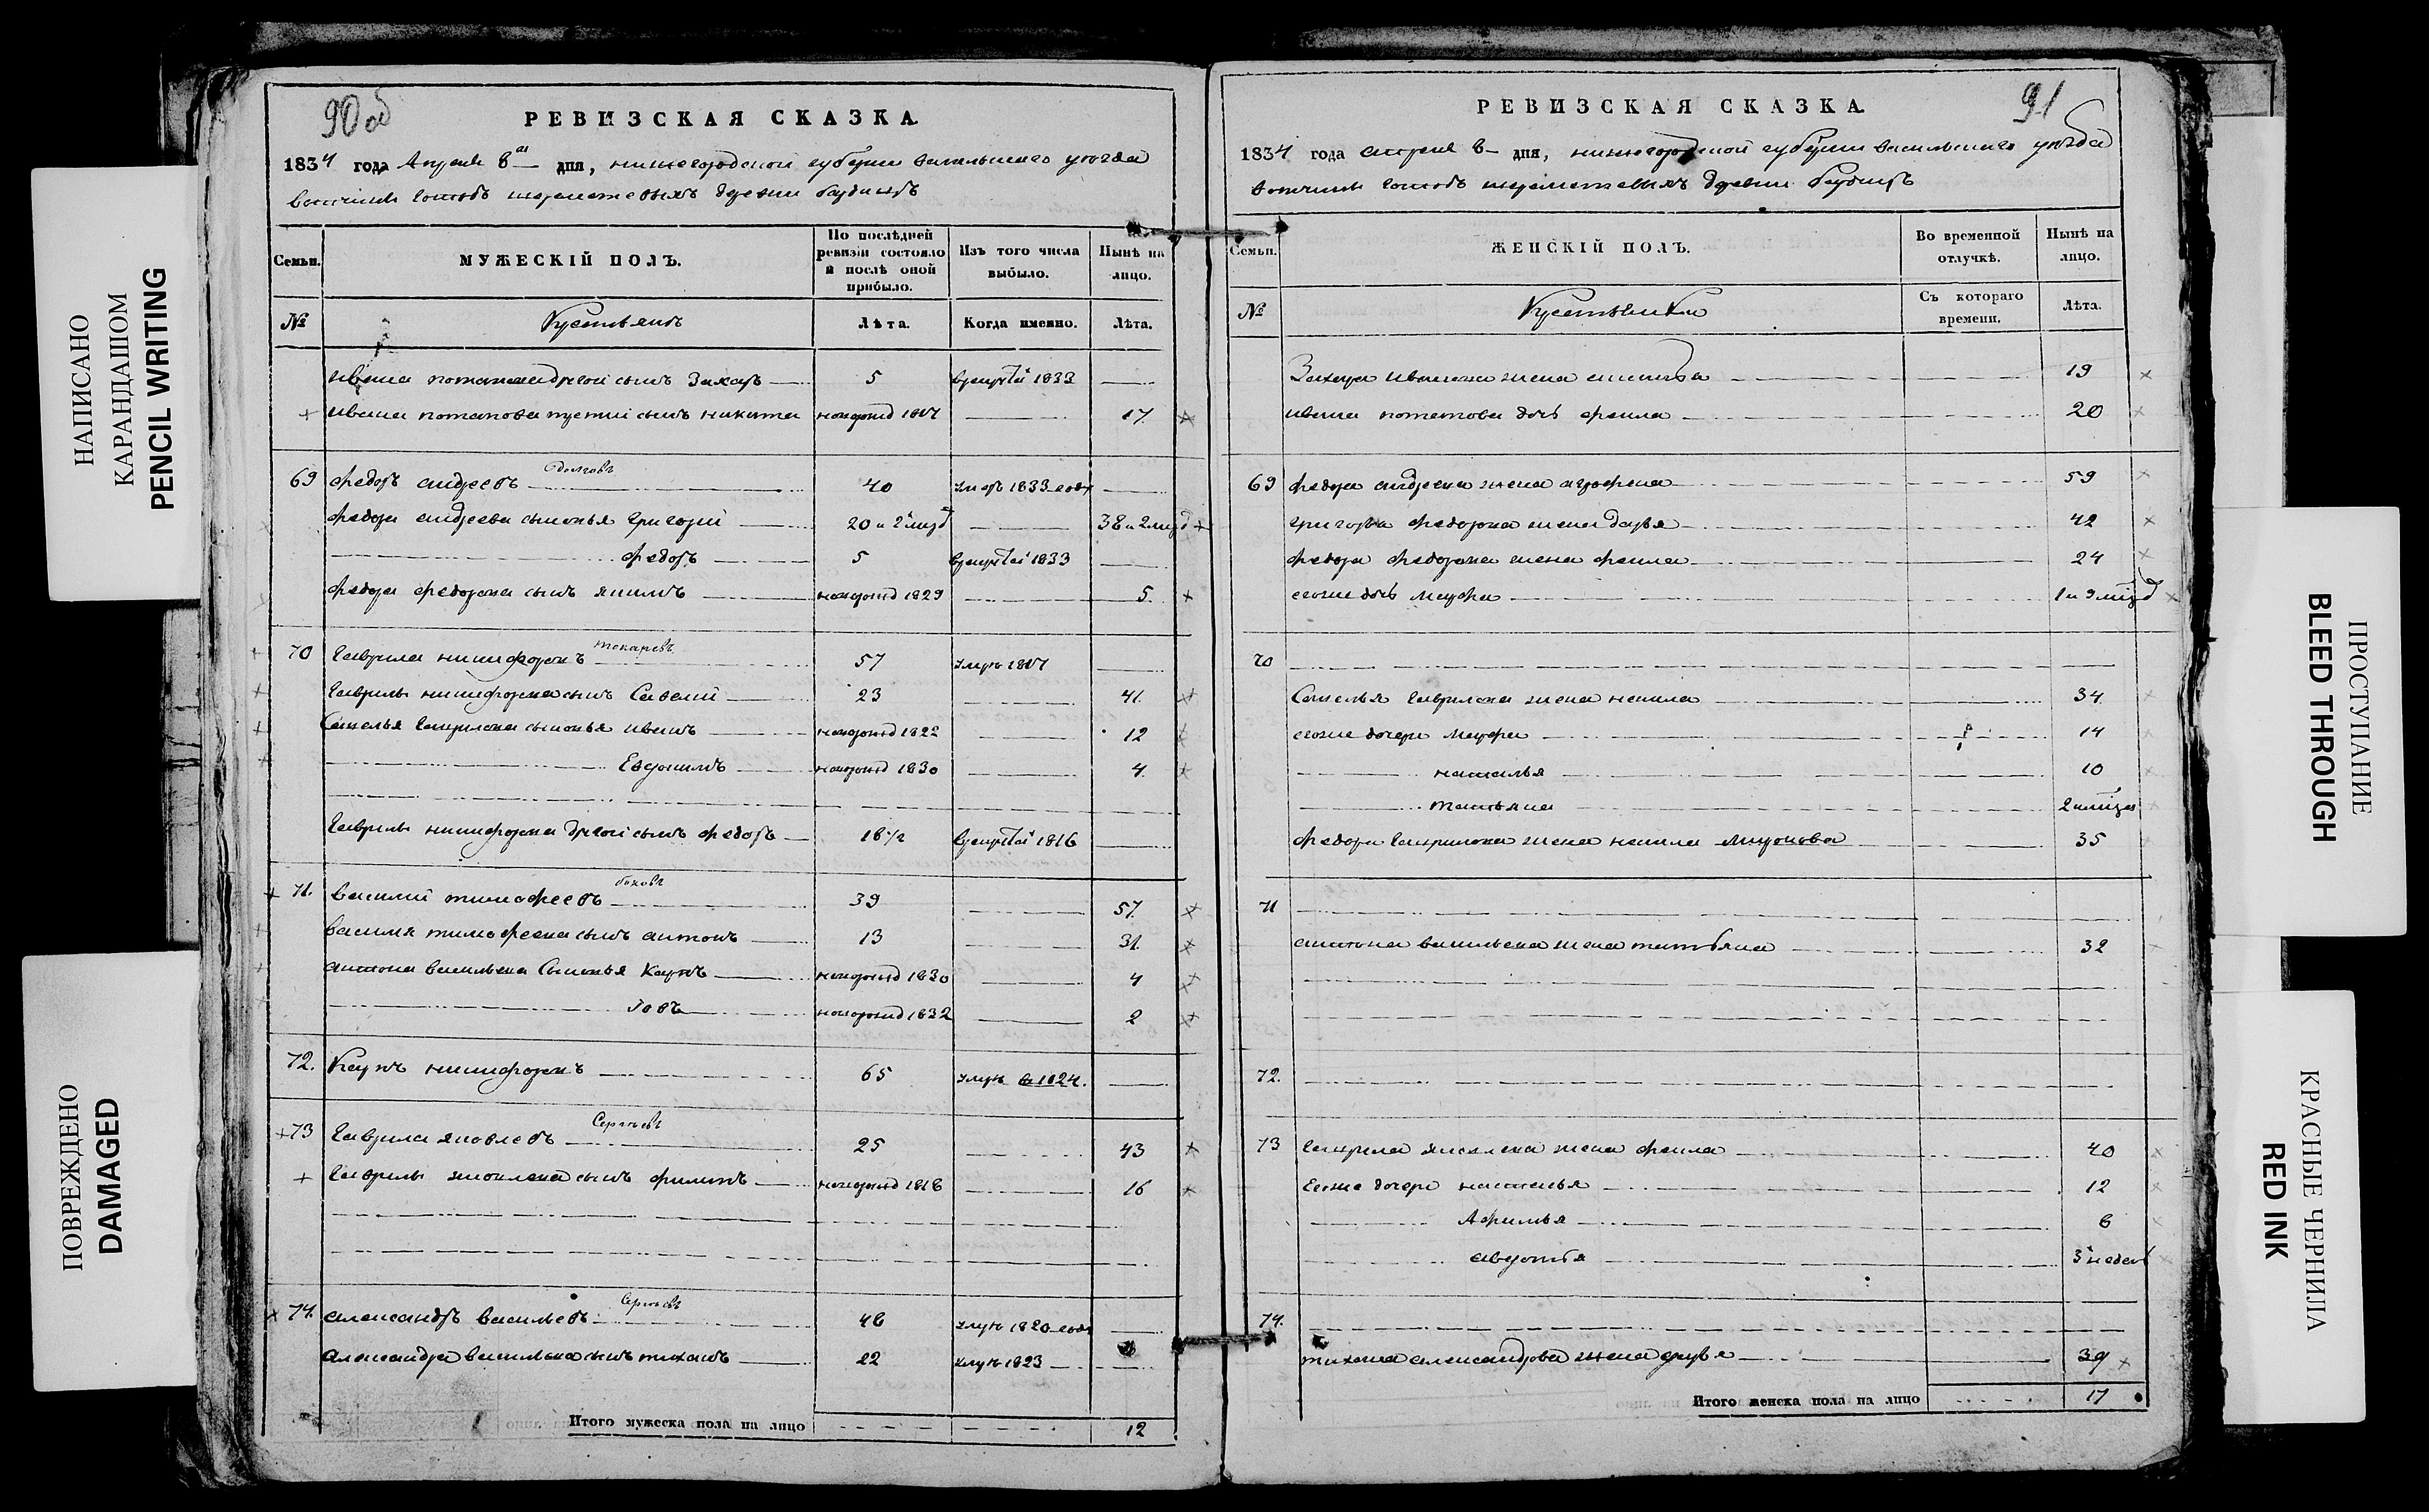 НАПИСАНО
КАРАНДАШОМ
PENCIL WRITING
ПОВРЕЖДЕНО
DAMAGED
90 об
РЕВИЗСКАЯ СКАЗКА.
1834 года Апреля 8 дня, нижегородской губернии васильского уезда
вотчины господъ шереметевыхъ деревни
Семьи.
МУЖЕСКІЙ ПОЛЪ.
По послѣдней ревизіи состояло и послѣ оной прибыло.
Изъ того числа выбыло.
Нынѣ на лицо.
№
Крестьянъ
Лѣта.
Когда именно.
Лѣта.
ивана потапова другой сынъ Захаръ 5 1833
ивана потапова третий сынъ никита новорожд 1817 17
69 федоръ андреевъ Долговъ 40 умеръ 1833 года
федора андреева сыновья григорий 20 и 2 38 и 2
федоръ 5 1833
федора федорова сынъ якимъ новорожд 1829 5
70 гаврила никифоровъ токаревъ 57 умеръ 1817
гаврилы никифорова сынъ Савелий 23 41
Савелья гаврилова сыновья иванъ новорожд 1822 12
Евдокимъ новорожд 1830 4
гаврилы никифорова другой сынъ федоръ 18 1/2 1816
71. василий тимофеевъ боковъ 39 57
василья тимофеева сынъ антонъ 13 31
антона васильева Сыновья Карпъ новорожд 1830 4
Iовъ новорожд 1832 2
72. Карпъ никифоровъ 65 умеръ в 1824.
73 гаврила яковлевъ Сергеевъ 25 43
гаврилы яковлева сынъ филипъ новорожд 1818 16
74. александръ васильевъ Сергеевъ 48 умеръ 1820 года
александра васильева сынъ тиханъ 22 умеръ 1823
Итого мужеска пола на лицо 12
91
РЕВИЗСКАЯ СКАЗКА.
1834 года апреля 8 дня, нижегородской губернии васильского уезда
вотчины господъ шереметевыхъ деревни
Семьи.
ЖЕНСКІЙ ПОЛЪ.
Во временной отлучкѣ.
Нынѣ на лицо.
№
Крестьянки
Съ котораго времени.
Лѣта.
Захара иванова жена 19
ивана потапова дочь фекла 20
69 федора андреева жена аграфена 59
григорья федорова жена дарья 42
федора федорова жена фекла 24
его же дочь марфа 1 и 9
70
Савелья гаврилова жена ненила 34
его же дочери марфа 14
наталья 10
татьяна 2
федора гаврилова жена ненила миронова 35
71
антона васильева жена татьяна 32
72.
73 гаврила яковлева жена фекла 40
Его же дочери наталья 12
Афимья 6
авдотья 3 недели
74.
тихана александрова жена дарья 39
Итого женска пола на лицо 17
ПРОСТУПАНИЕ
BLEED THROUGH
КРАСНЫЕ ЧЕРНИЛА
RED INK